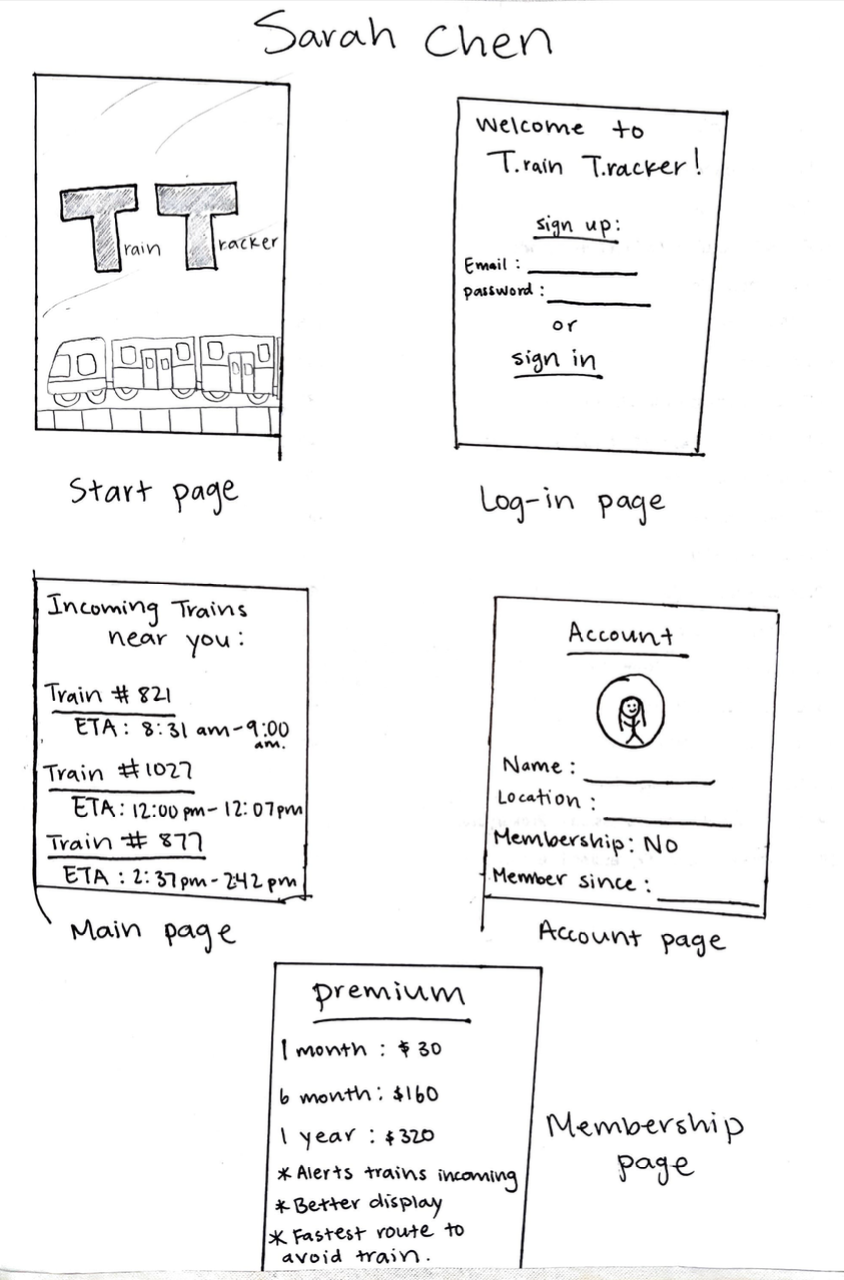 Sarah Chen
Train Tracker
Start page
Welcome to
T.rain T.racker!
sign up:
Email :
password :
or
sign in
Log-in page
Incoming Trains
near you:
Train # 821
ETA: 8:31 am-9:00
am.
Train #1027
ETA: 12:00 pm-12:07pm
Train # 877
ETA : 2:37pm-2:42 pm
Main page
Account
Name :
Location :
Membership: No
Member since :
Account page
premium
1 month : $30
6 month: $160
1 year : $320
*Alerts trains incoming
*Better display
*Fastest route to
avoid train.
Membership
page